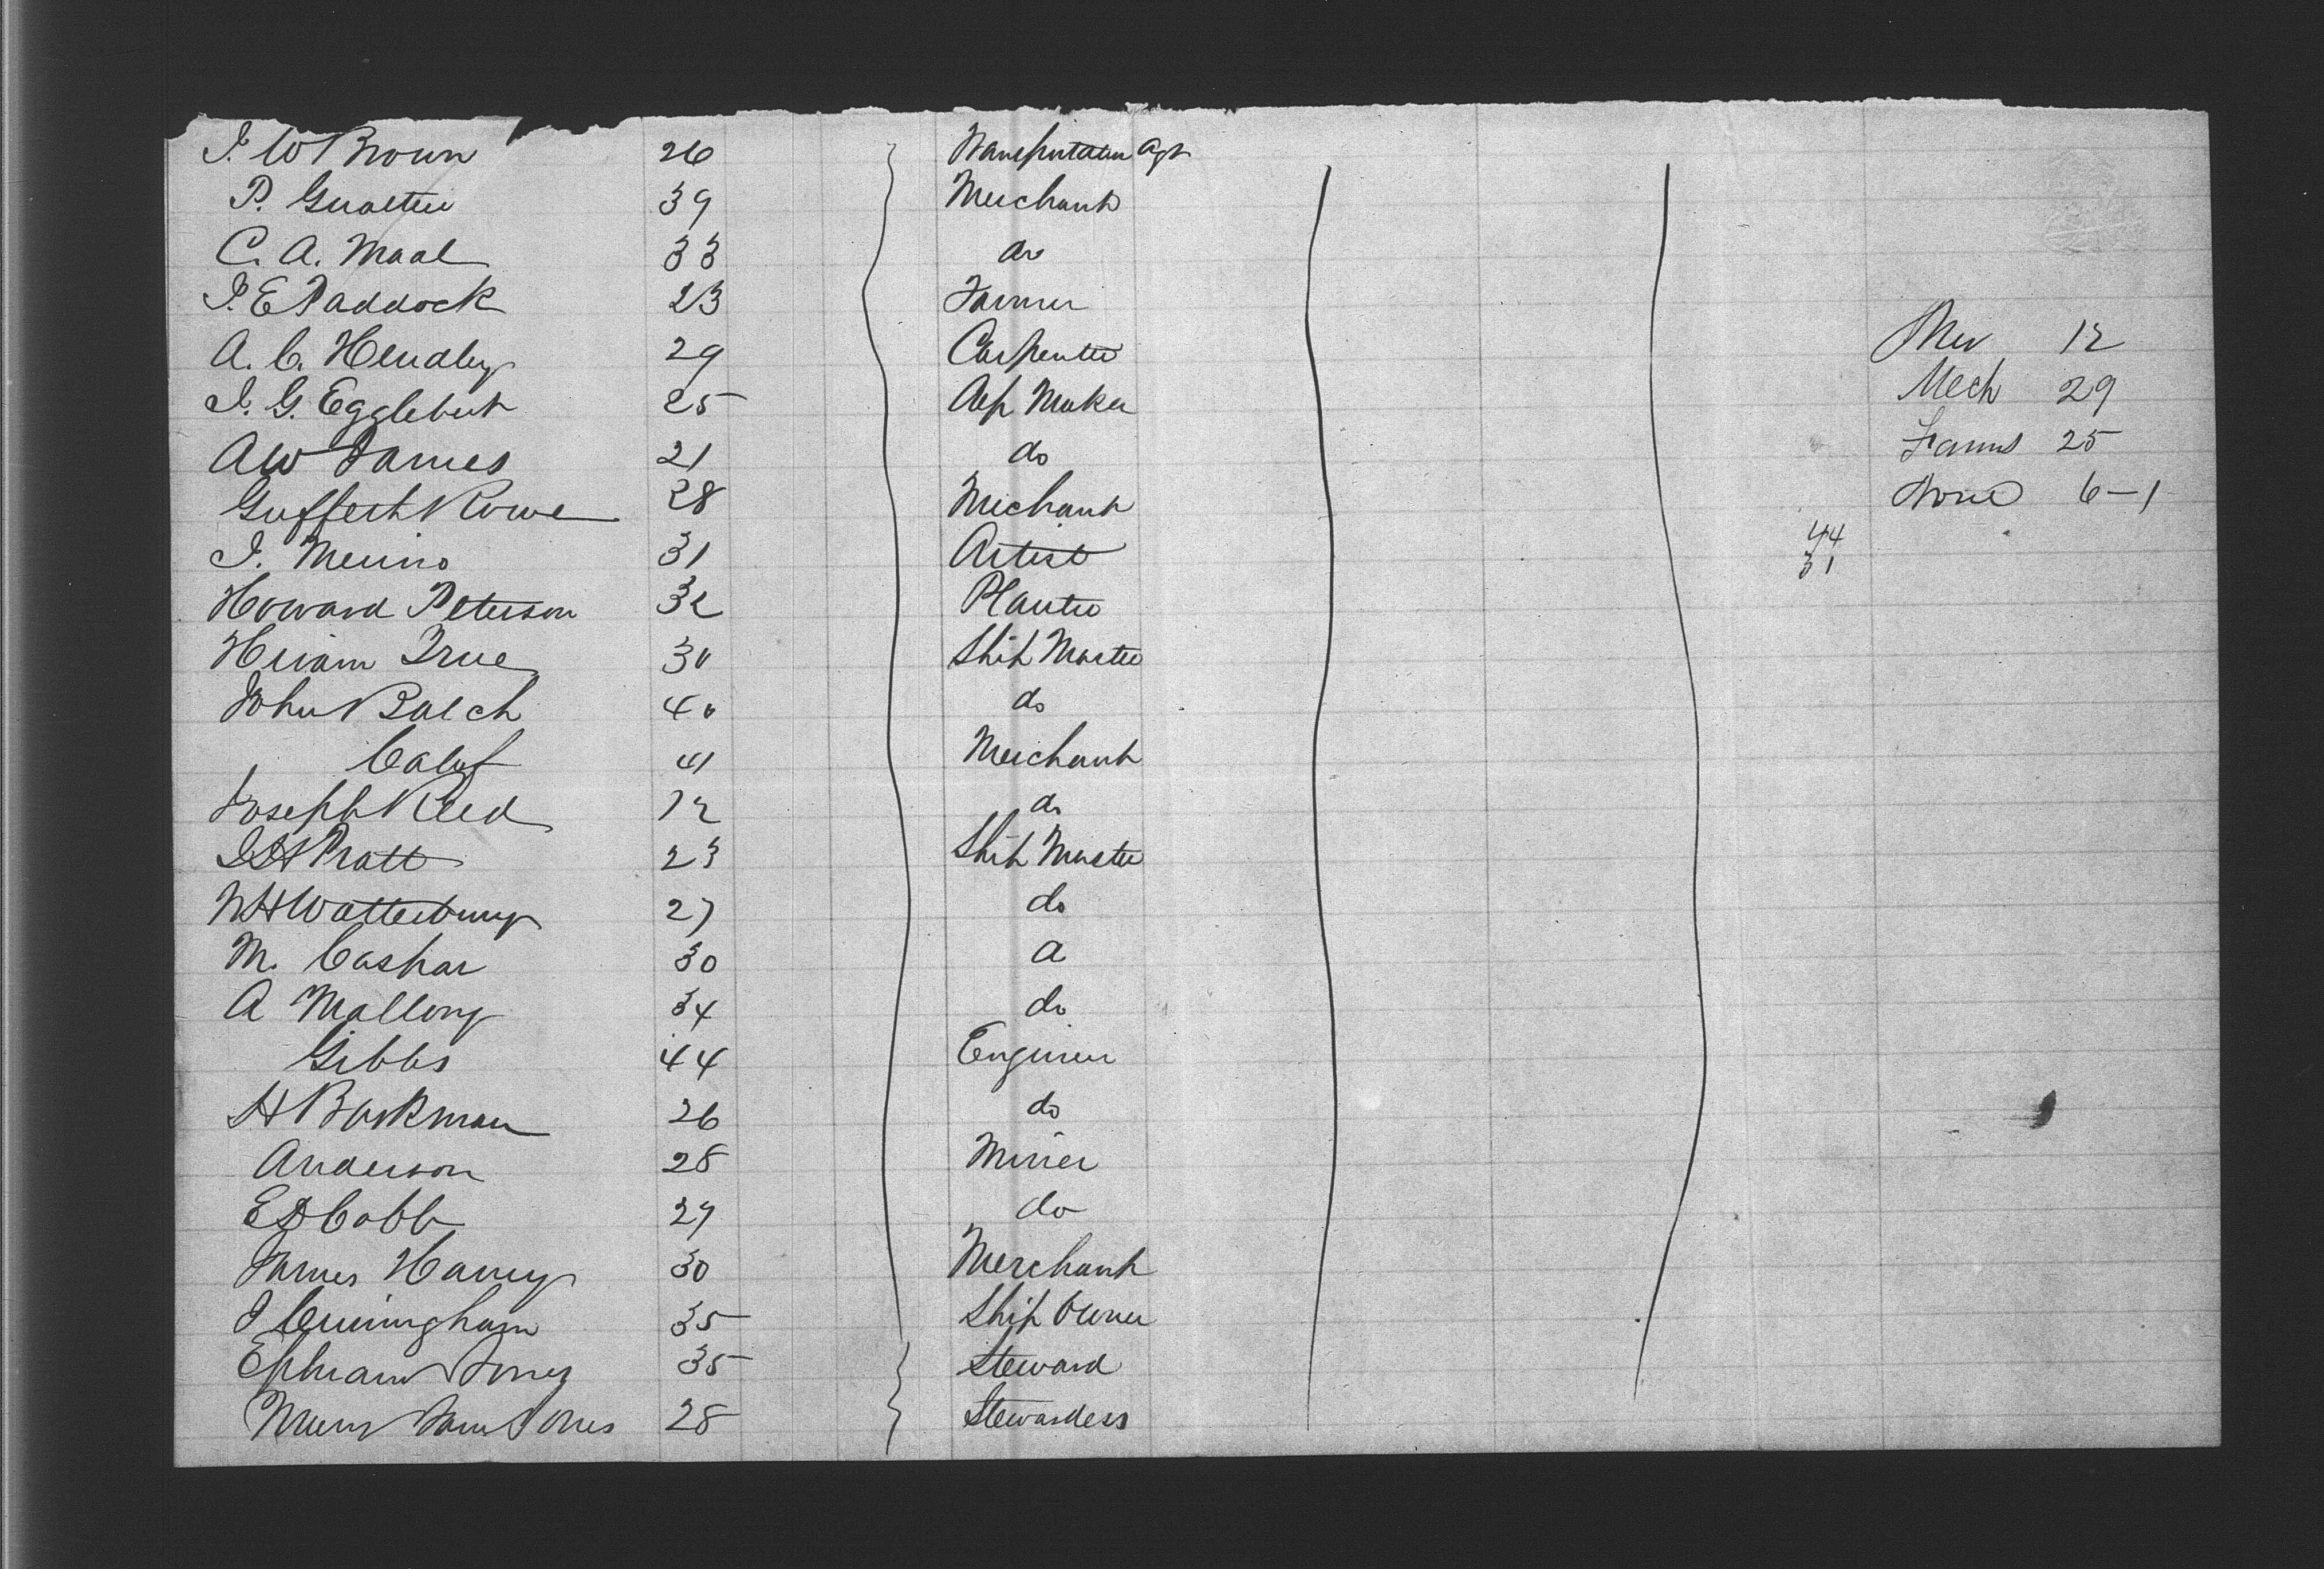 J. W Brown 26 Transportation Agt
P. Gualtie 39 Merchant
C. A. Maal 33 do
J. E Paddock 23 Farmer
A. C. Hendley 29 Carpenter
J. G. Egglebert 25 Maker
A W James 21 do
Rowe 28 Merchant
J. Merino 31 Artist
Howard Peterson 32 Planter
Hiram True 30 Ship Master
John Balch 40 do
Calef 41 Merchant
Joseph Reed 12 do
Pratt 23 Ship Master
Watterbury 27 do
M. Cashar 30 a
A Mallory 34 do
Gibbs 44 Engineer
H Barkman 26 do
Anderson 28 Miner
E D Cobb 29 do
James Harvey 30 Merchant
J Cuningham 35 Ship Owner
Ephraim Jones 35 Steward
Jones 28 Stewardess
Mer 12
Mech 29
Farms 25
None 6-1
44
31